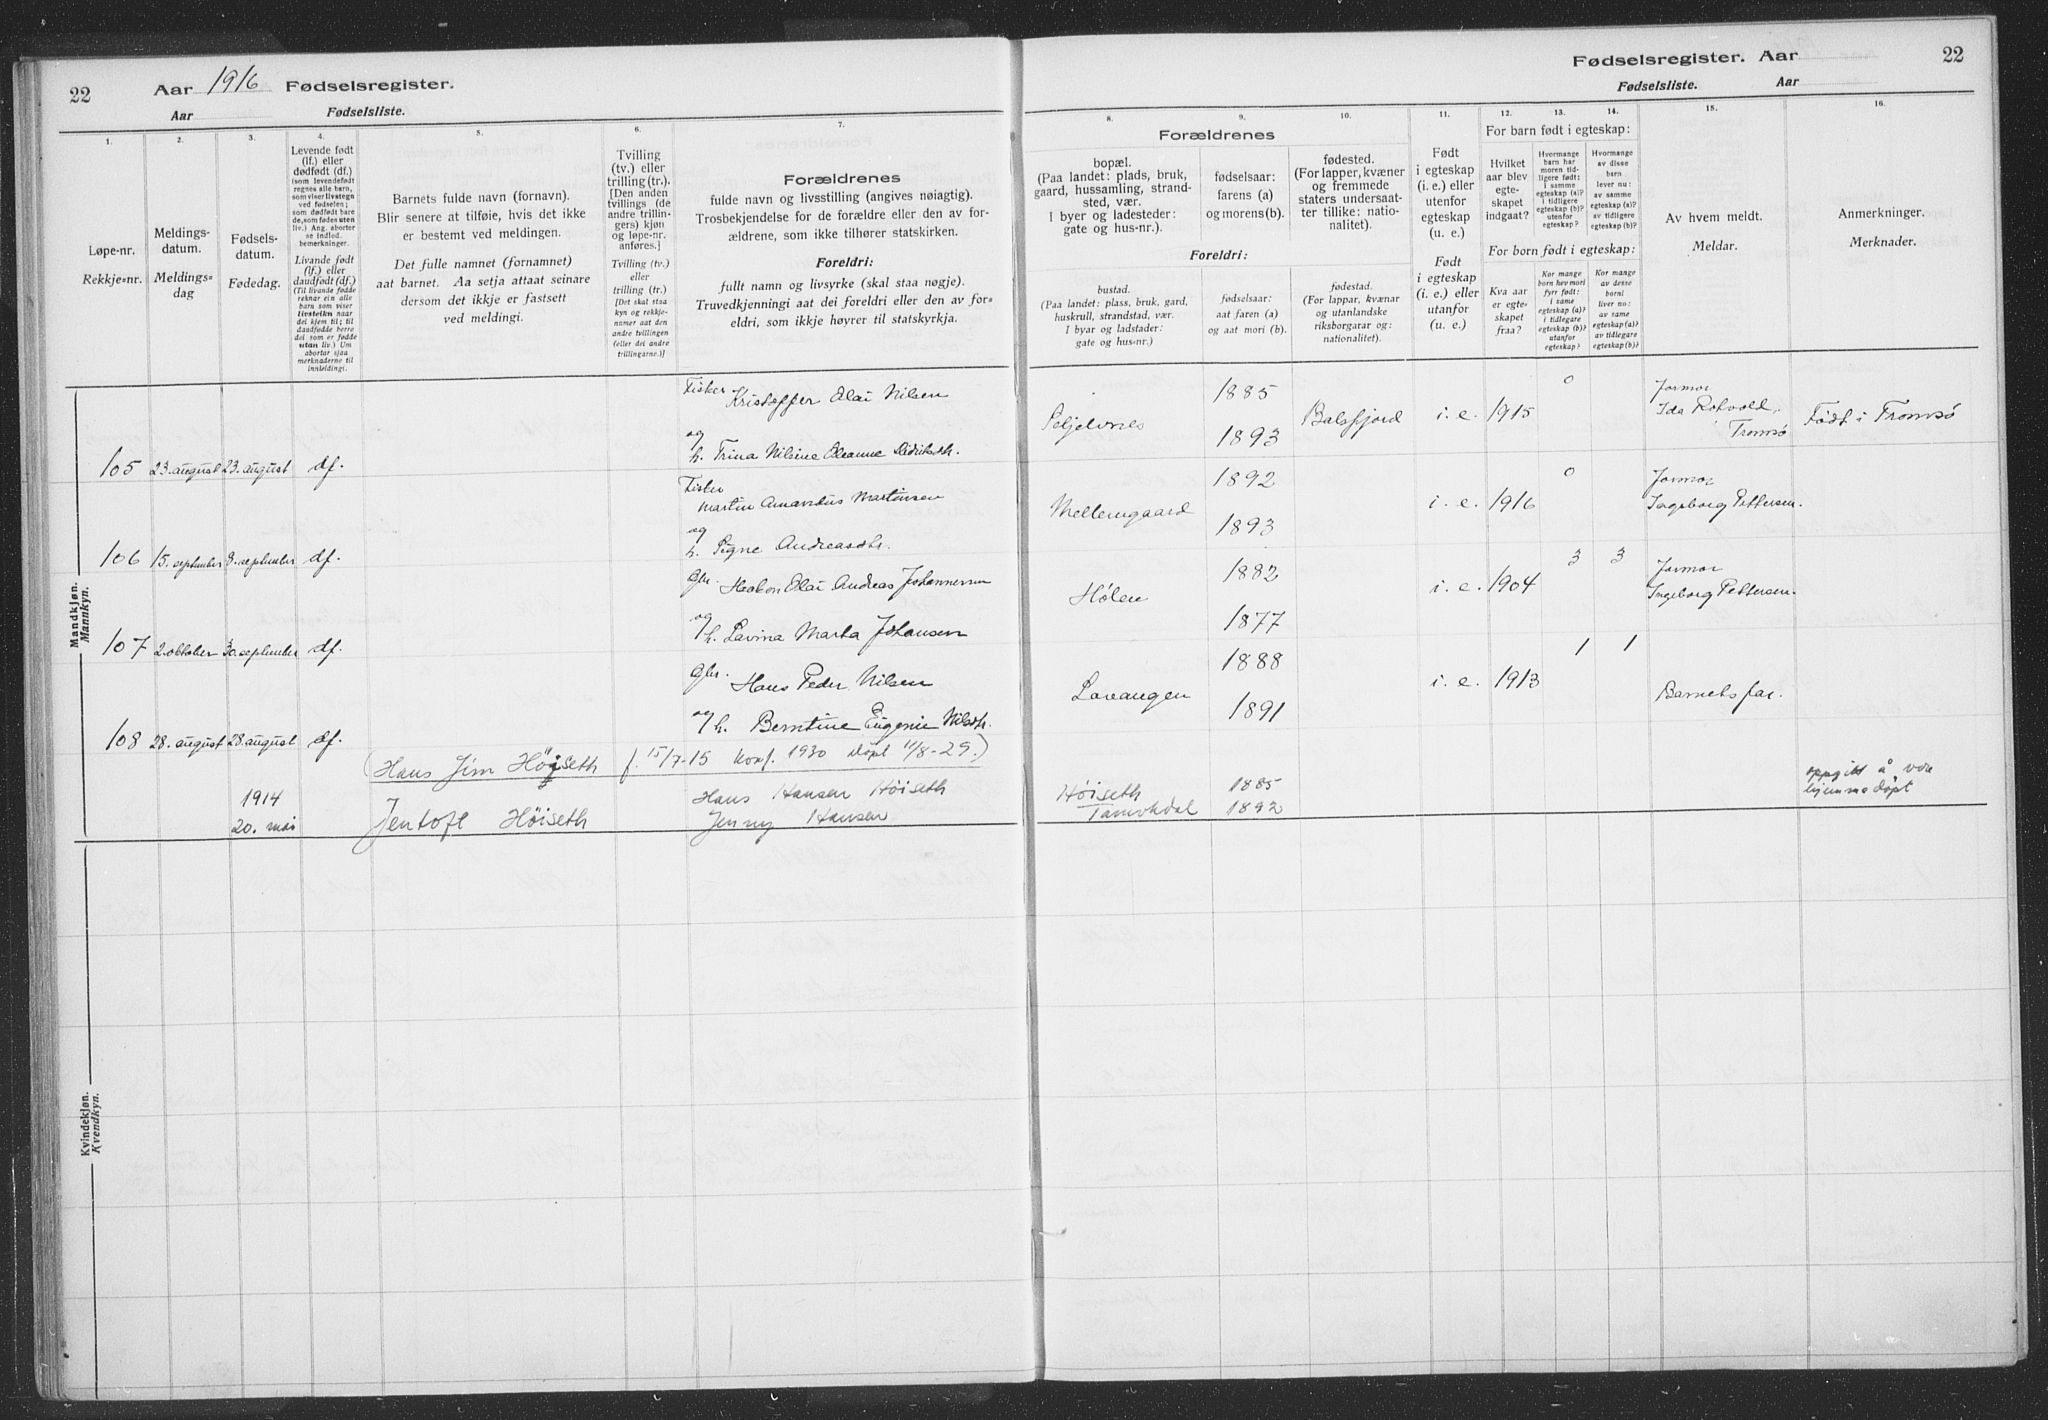 22
Aar 1916 Fødselsregister.
Aar Fødselsliste.
1.
Løpe-nr.
Rekkje=nr.
2.
Meldings-
datum.
Meldings=
dag
3.
Fødsels-
datum.
Fødedag.
4.
Levende født
(lf.) eller
dødfødt (df.)
(som levendefødt
regnes alle barn,
som viser livstegn
ved fødselen;
som dødfødt bare
de, som fødes uten
liv.) Ang. aborter
se indled.
bemerkninger.
Livande født
(lf.) eller
daudfødt (df.)
(Til livande fødde
reknar ein alle
born som viser
livsteikn naar
dei kjem til; til
daudfødde berre
dei som er fødde
utan liv.) Um
abortar sjaa
merknaderne til
innleidingi.
5.
Barnets fulde navn (fornavn).
Blir senere at tilføie, hvis det ikke
er bestemt ved meldingen.
Det fulle namnet (fornamnet)
aat barnet. Aa setja attaat seinare
dersom det ikkje er fastsett
ved meldingi.
6.
Tvilling
(tv.) eller
trilling (tr.).
[Den anden
tvillings (de
andre trillin-
gers) kjøn
og løpe-nr.
anføres.]
Tvilling (tv.)
eller
trilling (tr.)
[Det skal staa
kyn og rekkje-
nummer aat den
andre tvillingen
(eller dei andre
trillingarne.)]
7.
Forældrenes
fulde navn og livsstilling (angives nøiagtig).
Trosbekjendelse for de forældre eller den av for-
ældrene, som ikke tilhører statskirken.
Foreldri:
fullt namn og livsyrke (skal staa nøgje).
Truvedkjenningi aat dei foreldri eller den av for=
eldri, som ikkje høyrer til statskyrkja.
Mandkjøn.
Mannkyn.
Fisker Kristoffer Olai Nilsen
og
105 23. august 23. august df. h. Trina Nilsine Oleanne Didriksdtr.
Fisker
Martin Amandus Martinsen
og
106 15. september 3. september df. h. Signe Andreasdtr.
Gbr. Haakon Olai Andreas Johannessen
og
107 2. oktober 30. september df. h. Lavina Marta Johansen
Gbr. Hans Peder Nilsen
108 28. august 28. august df. og h. Berntine Eugenie Nilsdtr.
(Hans Jim Höiseth f. 15/7-15 Konf. 1930 Döpt 11/8-29.)
1914
20. mai Jentoft Höiseth
Hans Hansen Höiseth
Jenny Hansen
Kvindekjøn.
Kvendkyn.
Fødselsregister. Aar 22
Fødselsliste. Aar
8.
9.
10.
Forældrenes
bopæl.
(Paa landet: plads, bruk,
gaard, hussamling, strand-
sted, vær.
I byer og ladesteder:
gate og hus-nr.).
fødselsaar:
farens (a)
og morens(b).
fødested.
(For lapper, kvæner
og fremmede
staters undersaat-
ter tillike: natio-
nalitet).
Foreldri:
bustad.
(Paa landet: plass, bruk, gard,
huskrull, strandstad, vær.
I byar og ladstader:
gate og hus=nr.)
fødselsaar:
aat faren (a)
og aat mori (b).
fødestad.
(For lappar, kvænar
og utanlandske
riksborgarar og:
nationalitet).
11.
Født
i egteskap
(i. e.) eller
utenfor
egteskap
(u. e.)
Født
i egteskap
(i. e.) eller
utanfor
(u. e.)
12.
13.
14.
For barn født i egteskap:
Hvilket
aar blev
egte-
skapet
indgaat?
Hvormange
barn har
moren tid-
ligere født:
i samme
egteskap (a)?
i tidligere
egteskap (b)?
utenfor
egteskap?
Hvormange
av disse
barn
lever nu:
av samme
egteskap (a)?
av tidligere
egteskap (b)?
For born født i egteskap:
Kva aar
er egte-
skapet
fraa?
Kor mange
born hev mori
fyrr født:
i same
egteskap (a)?
i tidlegare
egteskap (b)?
utanfor
egteskap?
Kor mange
av desse
borni
liver no:
av same
egteskap (a)?
av tidlegare
egteskap (b)?
15.
Av hvem meldt.
Meldar.
16.
Anmerkninger.
Merknader.
Seljelvnes 1885 1893 Balsfjord i. e. 1915 0 Jormor
Ida Rotvold,
Tromsø Født i Tromsø
Mellemgaard 1892 1893 i. e. 1916 0 Jormor
Ingeborg Pettersen.
Hølen 1882 1877 i. e. 1904 3 3 Jormor
Ingeborg Pettersen.
Lavangen 1888 1891 i. e. 1913 1 1 Barnets far.
Höiseth 1885
Tamokdal 1892
oppgitt å være
hjemmedöpt